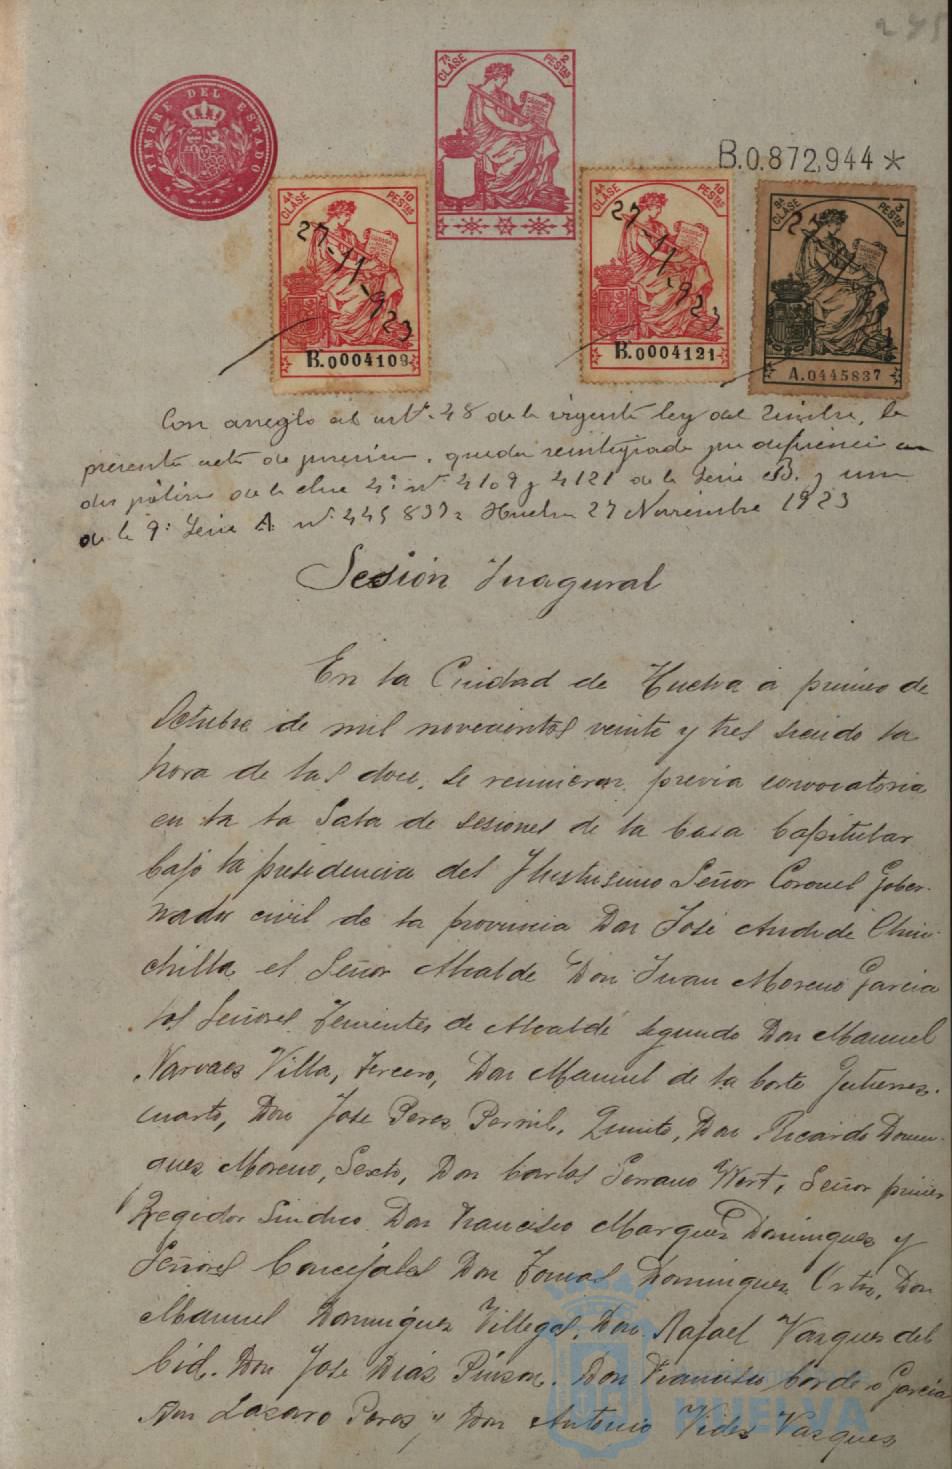 245
TIMBRE DEL ESTADO
7ª CLASE 2 PESTAS
B.0.872,944 *
4ª CLASE 10 PESTAS
27-11-923
B.0004109
4ª CLASE 10 PESTAS
27-11-923
B.0004121
8ª CLASE PESTAS
A.0445837
Con arreglo al artº. 48 de la vigente ley del Timbre, la
presente acta de , queda reintegrada por diferencia con
dos pólizas de la clase 4ª nº 4109 y 4121 de la Serie B. y una
de la 9ª Serie A. nº 445837 Huelva 27 Noviembre 1923
Sesión Inagural
En la Ciudad de Huelva a primero de
Octubre de mil novecientos veinte y tres siendo la
hora de las doce, se reunieron previa convocatoria
en la la Sala de sesiones de la Casa Capitular
bajo la presidencia del Ilustrisimo Señor Coronel Gober-
nador civil de la provincia Don José Andrde Chin-
chilla el Señor Alcalde Don Juan Moreno Garcia
los Señores Tenientes de Alcalde segundo Don Manuel
Narvaes Villa, tercero, Don Manuel de la Corte Gutierrez.
cuarto, Don Jose Peres Pernil. Quinto, Don Ricardo Domin-
gues Moreno, Sexto, Don Carlos Serrano Wert, Señor primer
Regidor Sindico Don Francisco Marques Domingues y
Señores Concejales Don Tomas Domingues Ortiz, Don
Manuel Dominguez Villegas, Don Rafael Vazques del
Cid. Don Jose Dias Pinzon. Don Francisco Cordero Garcia
Don Lazaro Peres y Don Antonio Vides Vazques
HUELVA